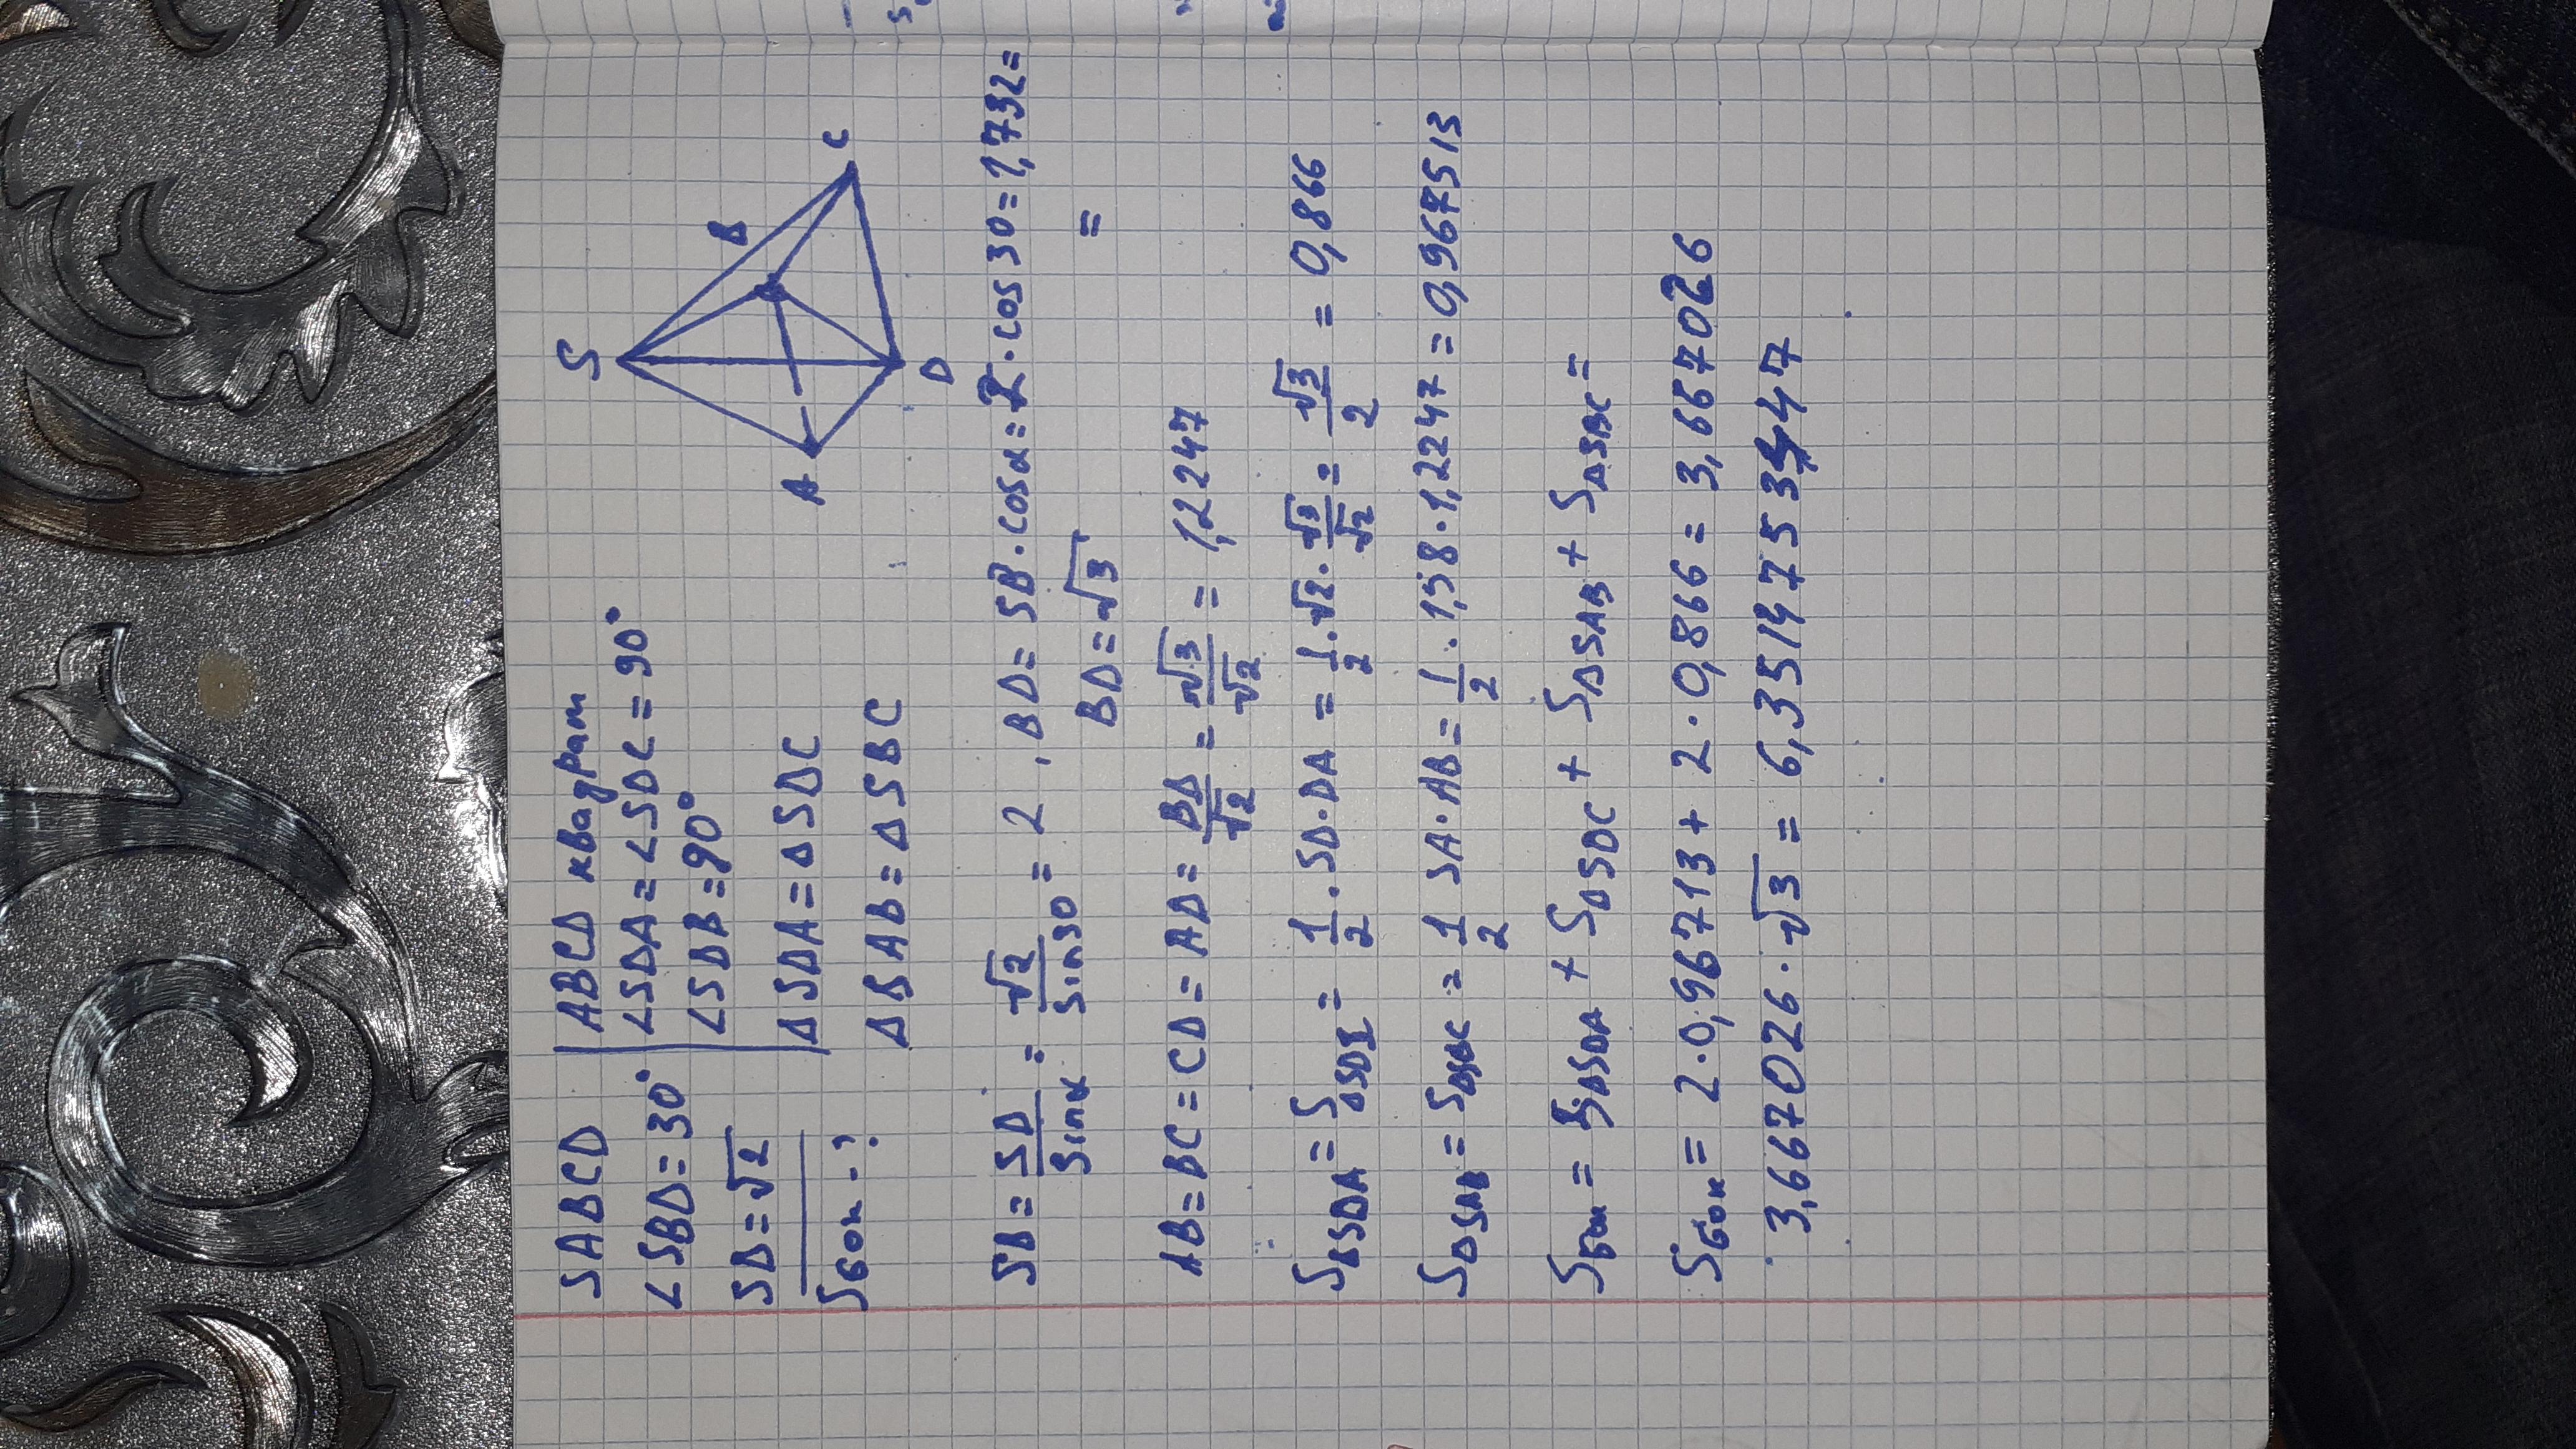 SABCD | ABCD квадрат
∠SBD=30° | ∠SDA=∠SDC=90°
SD=√2 | ∠SDB=90°
Sбок-? | ΔSDA=ΔSDC
ΔSAB=ΔSBC
S
A
B
C
D
SB = SD/Sinα = √2/Sin30 = 2, BD = SB·cosα = 2·cos30 = 1,732 =
BD=√3 =
AB=BC=CD=AD= BD/√2 = √3/√2 = 1,2247
SΔSDA = SΔSDC = 1/2·SD·DA = 1/2·√2·√3/√2 = √3/2 = 0,866
SΔSAB = SΔSBC = 1/2 SA·AB = 1/2·1,58·1,2247 = 0,967513
Sбок = SΔSDA + SΔSDC + SΔSAB + SΔSBC =
Sбок = 2·0,96713 + 2·0,866 = 3,667026
3,667026·√3 = 6,351475 3447